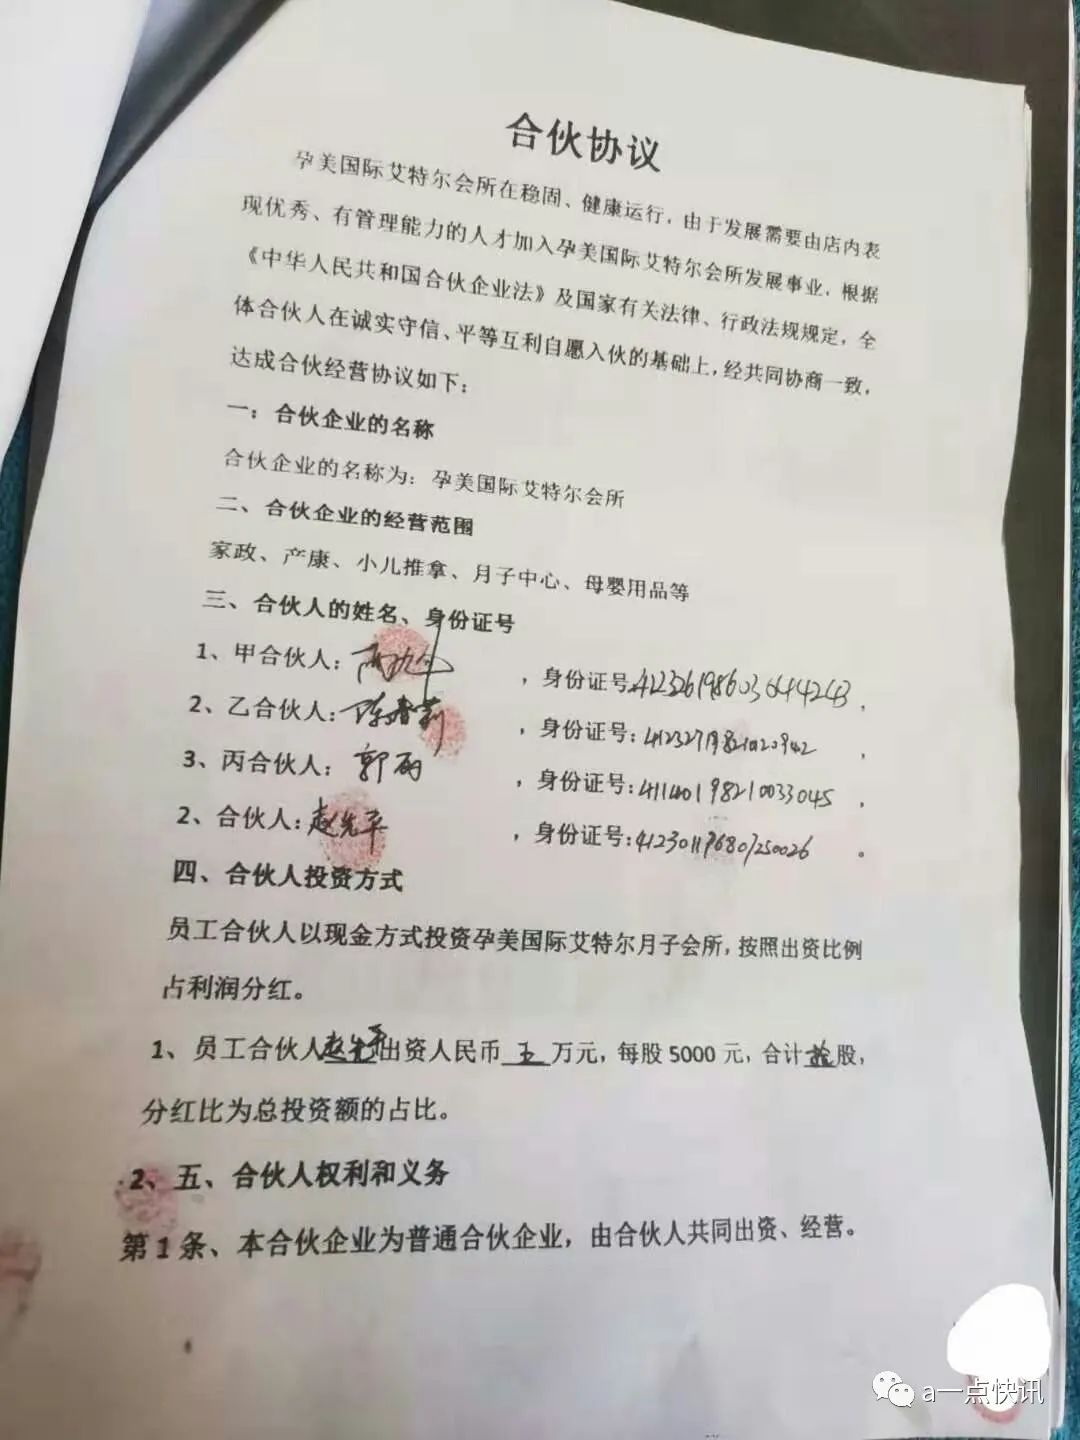 合伙协议
孕美国际艾特尔会所在稳固、健康运行，由于发展需要由店内表
现优秀、有管理能力的人才加入孕美国际艾特尔会所发展事业，根据
《中华人民共和国合伙企业法》及国家有关法律、行政法规规定，全
体合伙人在诚实守信、平等互利自愿入伙的基础上，经共同协商一致，
达成合伙经营协议如下：
一：合伙企业的名称
合伙企业的名称为：孕美国际艾特尔会所
二、合伙企业的经营范围
家政、产康、小儿推拿、月子中心、母婴用品等
三、合伙人的姓名、身份证号
1、甲合伙人： ，身份证号: ，
2、乙合伙人： ，身份证号: ，
3、丙合伙人： 郭丽 ，身份证号: 411401198210033045 ，
2、合伙人：赵先平 ，身份证号: 412301196807250026 。
四、合伙人投资方式
员工合伙人以现金方式投资孕美国际艾特尔月子会所，按照出资比例
占利润分红。
1、员工合伙人赵先平出资人民币 五 万元，每股 5000 元，合计拾股，
分红比为总投资额的占比。
2、五、合伙人权利和义务
第 1 条、本合伙企业为普通合伙企业，由合伙人共同出资、经营。
a一点快讯